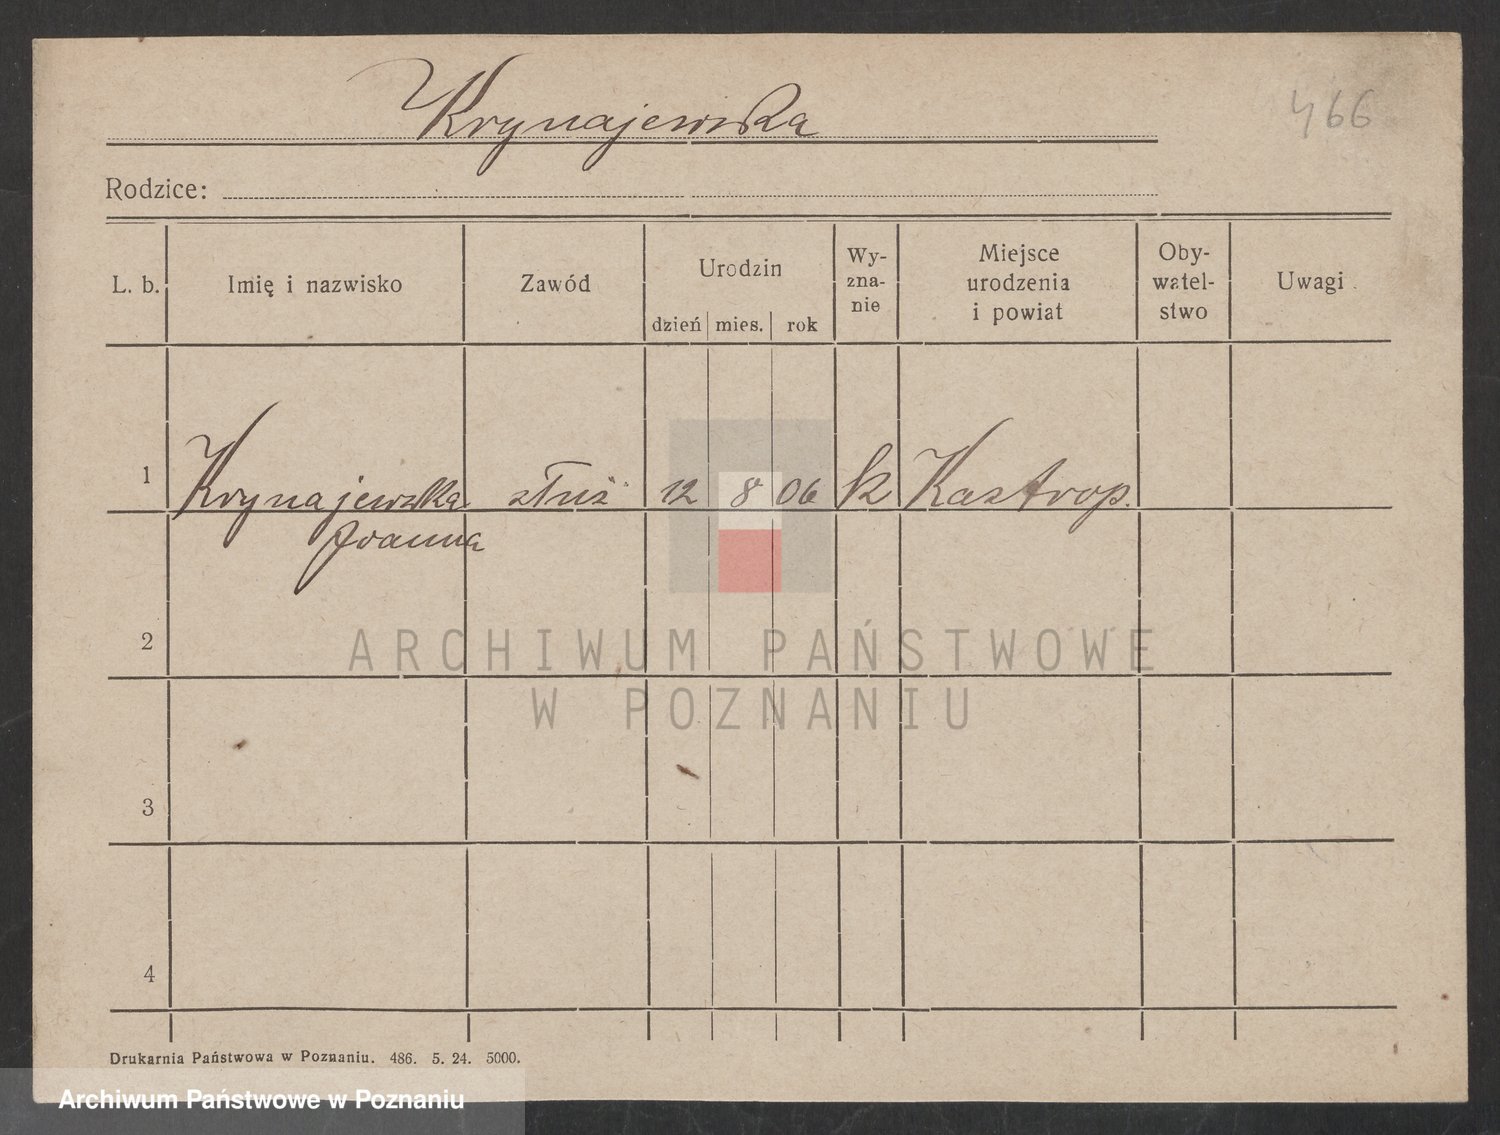 Krynajewska
466
Rodzice:
L. b. Imię i nazwisko Zawód Urodzin dzień mies. rok Wy-zna-nie Miejsce urodzenia i powiat Oby-watel-stwo Uwagi
1 Krynajewska służ 12 8 06 k Kastrop.
Joanna
2
3
4
ARCHIWUM PAŃSTWOWE
W POZNANIU
Drukarnia Państwowa w Poznaniu. 486. 5. 24. 5000.
Archiwum Państwowe w Poznaniu